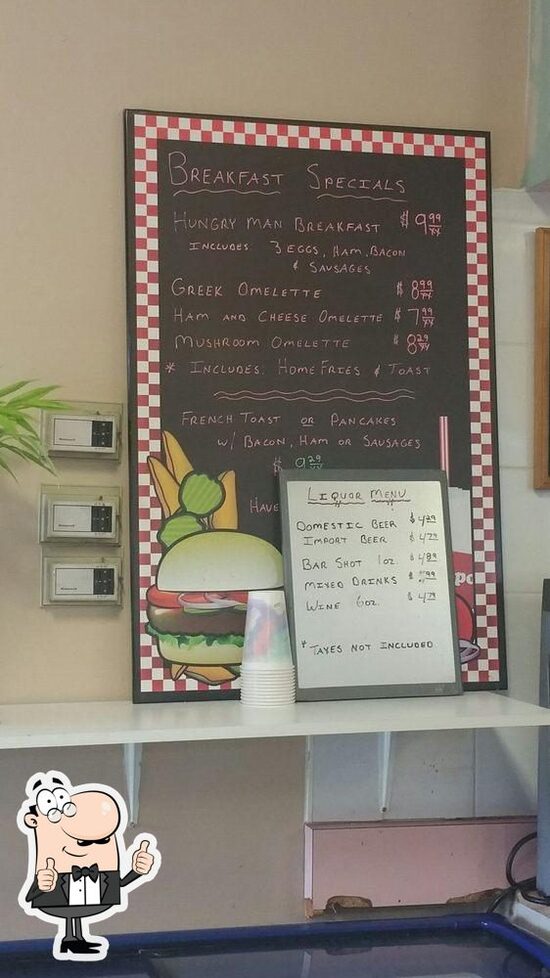 BREAKFAST SPECIALS
HUNGRY MAN BREAKFAST $9.99
INCLUDES 3 EGGS, HAM, BACON
& SAUSAGES
GREEK OMELETTE $8.99
HAM AND CHEESE OMELETTE $7.99
MUSHROOM OMELETTE $8.29
* INCLUDES: HOME FRIES & TOAST
FRENCH TOAST OR PANCAKES
W/ BACON, HAM OR SAUSAGES
$9.29
HAVE
LIQUOR MENU
DOMESTIC BEER
IMPORT BEER
BAR SHOT 1oz
MIXED DRINKS
WINE 6oz.
* TAXES NOT INCLUDED